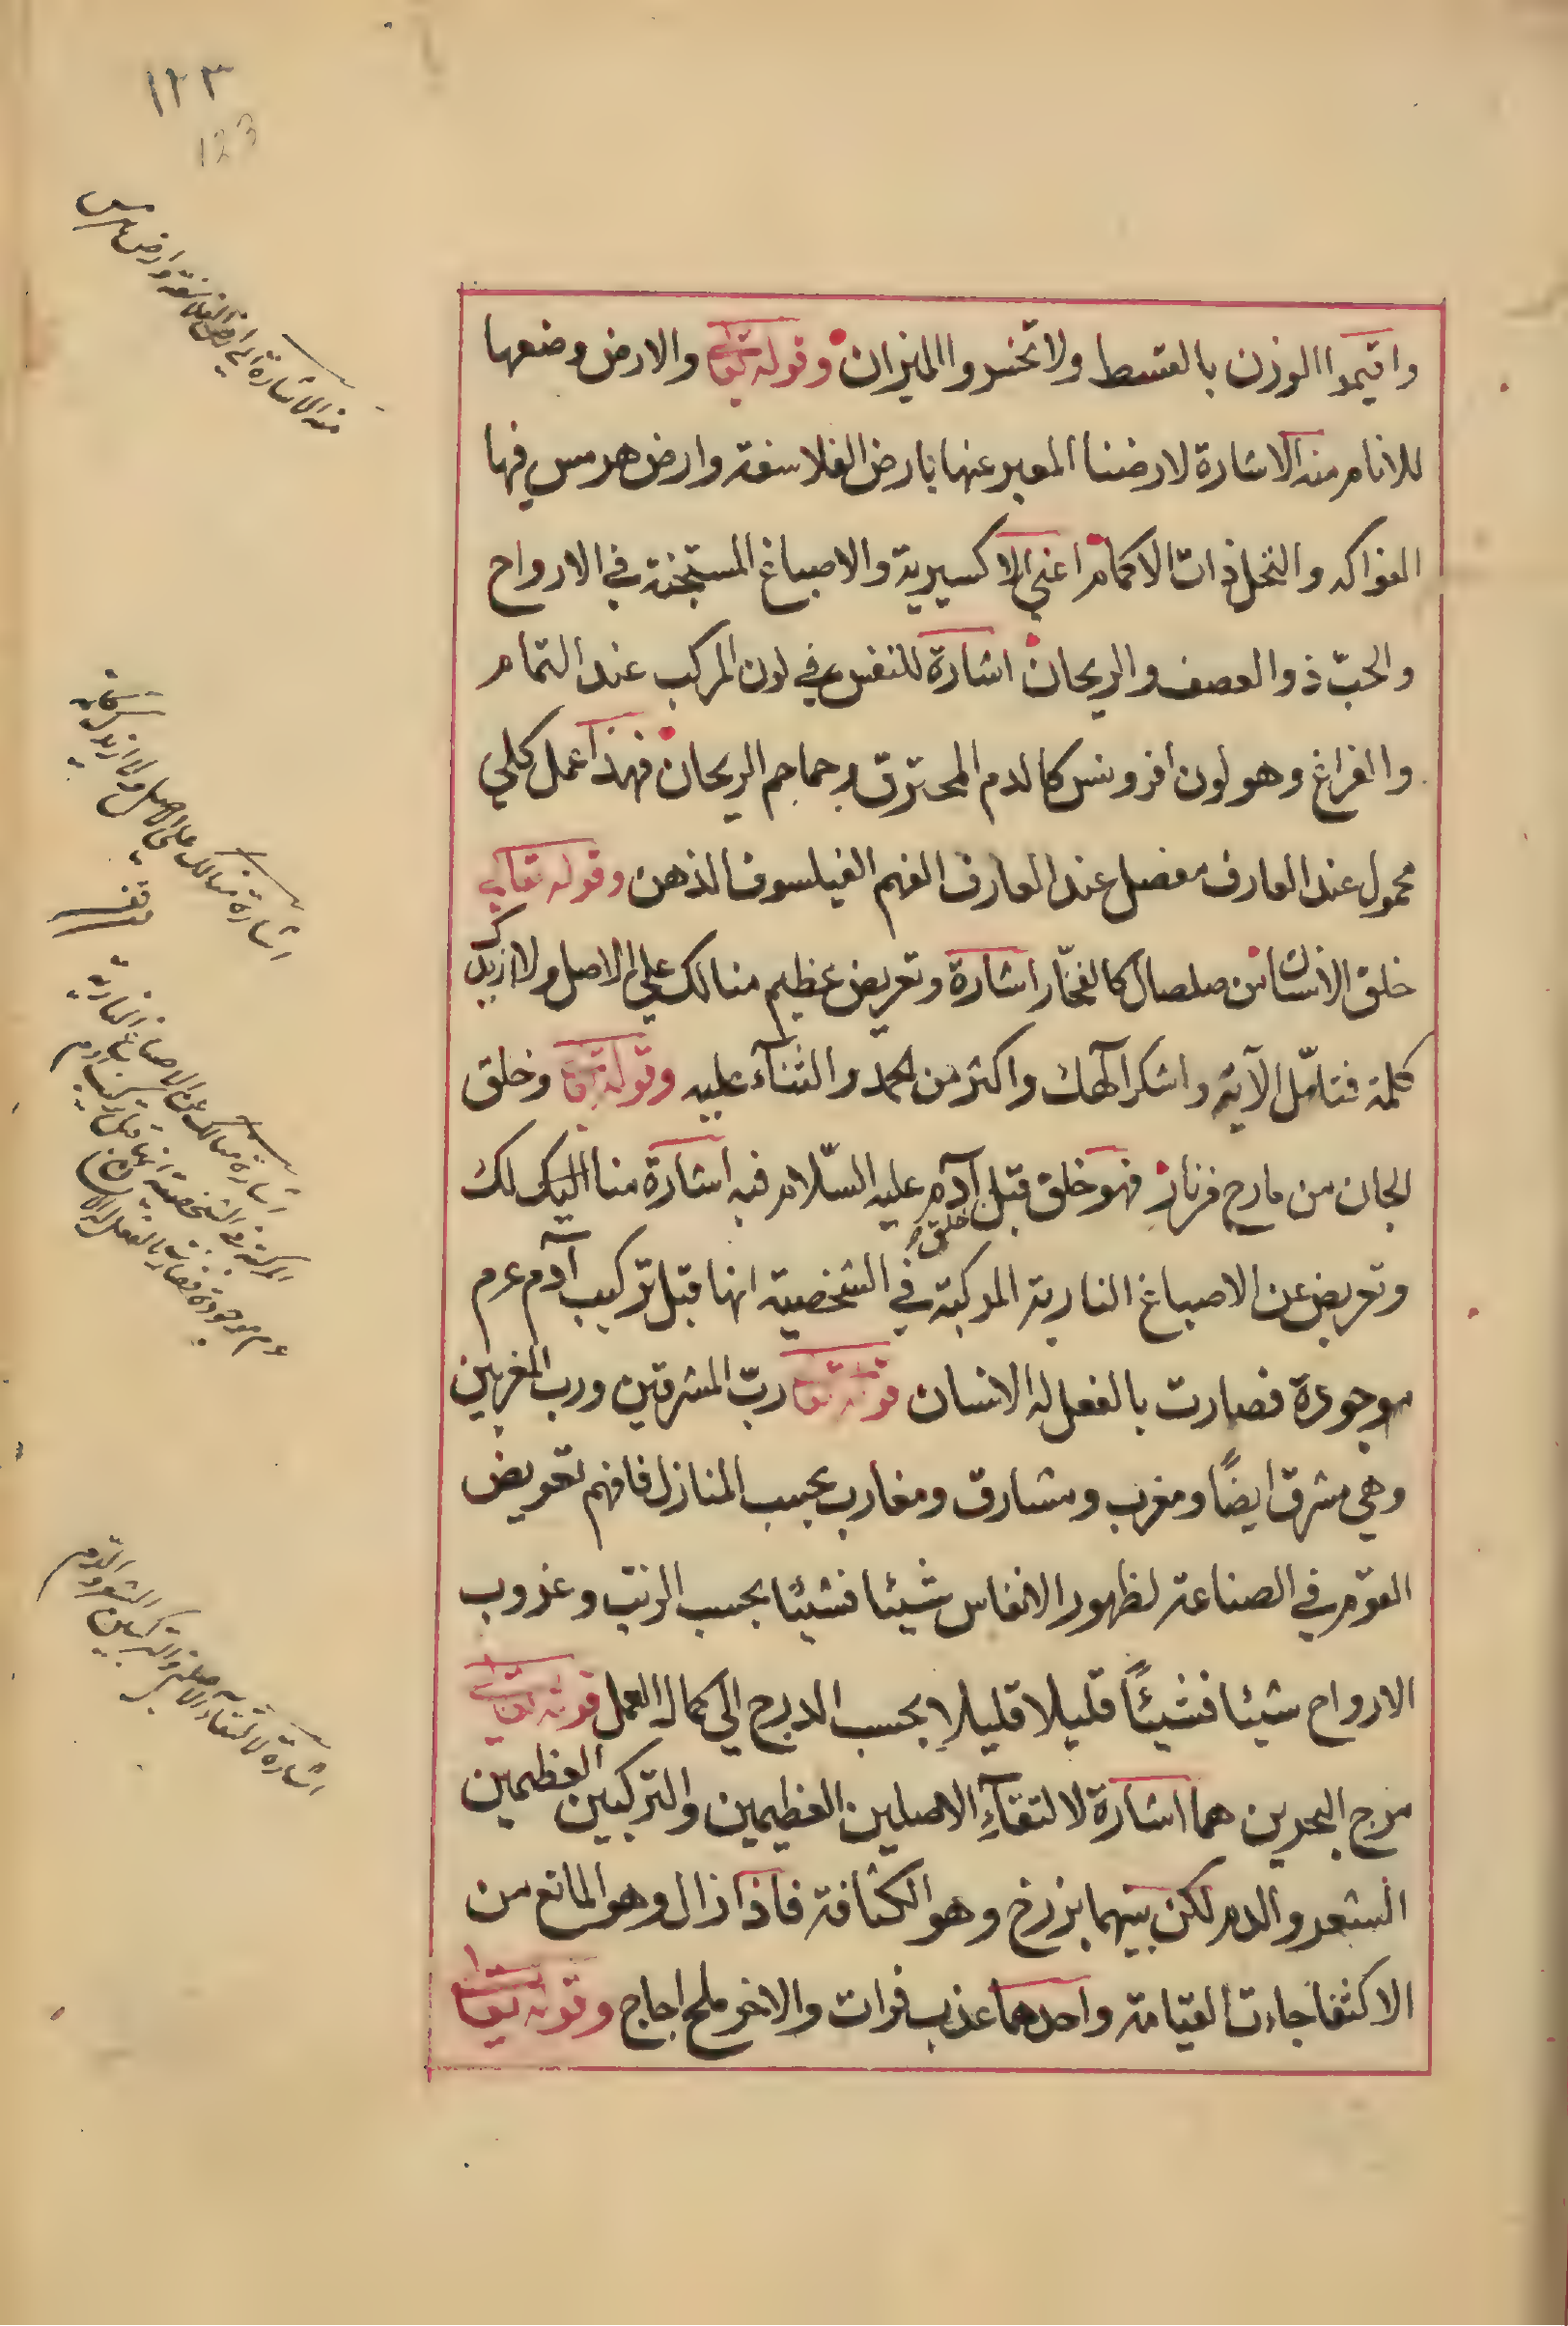 ١٢٣
123
واقيموا الوزن بالقسط ولا تخسروا الميزان وقوله تعالى والارض وضعها
للانام منه الاشارة لارضنا المعبر عنها بارض الفلاسفة وارض هرمس فيها
الفواكه والنخل ذات الاكمام اعني الاكسيرية والاصباغ المستجنة في الارواح
والحبّ ذو العصف والريحان اشارة للنفس في لون المركب عند التمام
والفراغ وهو لون افرونس كالدم المحترق وجماجم الريحان فهذا عمل كلي
محمول عند العارف مفصل عند العارف الفهم الفيلسوف الذهن وقوله تعالى
خلق الانسان من صلصال كالفخّار اشارة وتعريض عظيم منا لك على الاصل ولا ازيدك
كلمة فتامّل الآية واشكر آلهك واكثر من الحمد والثنآء عليه وقوله تعا وخلق
الجان من مارج من نار فهو خلق قبل خلق آدم عليه السّلام فيه اشارة منا اليك لك
وتعريض عن الاصباغ النارية المركبة في الشخصية انها قبل تركيب آدم ع م
موجودة فصارت بالفعل له الانسان قوله تعا ربّ المشرقين ورب المغربين
وهي مشرق ايضًا ومغرب ومشارق ومغارب بحسب المنازل فافهم تعويض
القوم في الصناعة لظهور الانفاس شيئا فشيئا بحسب الرتب وغروب
الارواح شيئا فشيئًا قليلا قليلا بحسب الدرج الي كمال العمل قوله تعالى
مرج البحرين هما اشارة لالتقآءِ الاصلين العظيمين والتركيبين العظمين
الشعر والدم لكن بينهما برزخ وهو الكثافة فاذا زال وهو المانع من
الاكثفا جاءت القيامة واحدهما عذب فرات والاخر ملح اجاج وقوله تعالى
منه الاشارة الي ارض الفلاسفة وارض هرمس
اشارة منا لك على الاصل ولا ازيدك
اشارة منا لك عن الاصباغ النارية
المركبة في الشخصية انها قبل تركيب آدم
ع م موجودة فصارت بالفعل له الانسان
اشارة لالتقاء الاصلين والتركيبين الشعر والدم